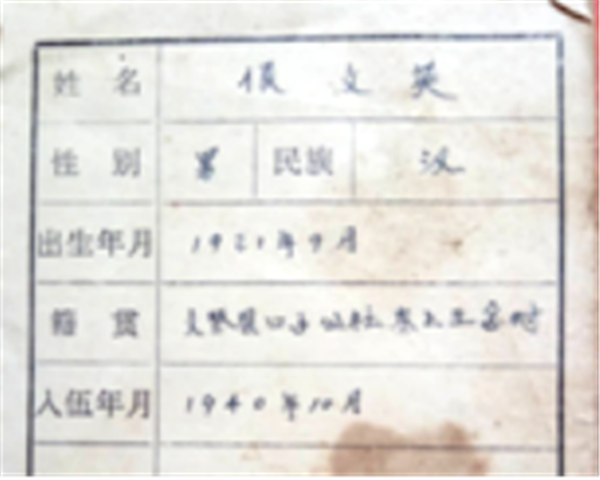 姓名 侯文英
性别 男 民族 汉
出生年月 1921年9月
籍贯 口子公社东大
入伍年月 1940年10月